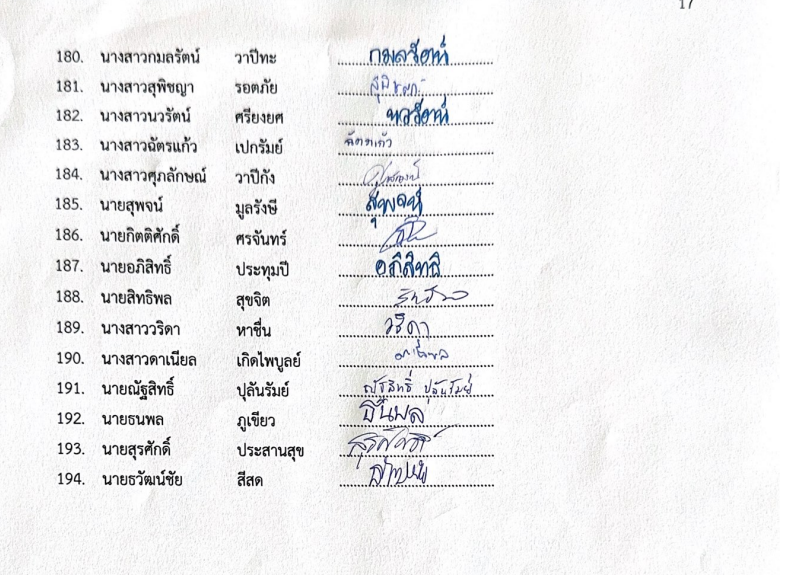 17
180. นางสาวกมลรัตน์ วาปีทะ กมลรัตน์
181. นางสาวสุพิชญา รอตภัย
182. นางสาวนวรัตน์ ศรียงยศ นวรัตน์
183. นางสาวฉัตรแก้ว เปกรัมย์ ฉัตรแก้ว
184. นางสาวศุภลักษณ์ วาปีกัง
185. นายสุพจน์ มูลรังษี สุพจน์
186. นายกิตติศักดิ์ ศรจันทร์
187. นายอภิสิทธิ์ ประทุมปี อภิสิทธิ
188. นายสิทธิพล สุขจิต
189. นางสาววริดา หาชื่น วริดา
190. นางสาวดาเนียล เกิดไพบูลย์
191. นายณัฐสิทธิ์ ปุลันรัมย์ ณัฐสิทธิ์ ปุลันรัมย์
192. นายธนพล ภูเขียว ธนพล
193. นายสุรศักดิ์ ประสานสุข สุรศักดิ์
194. นายธวัฒน์ชัย สีสด